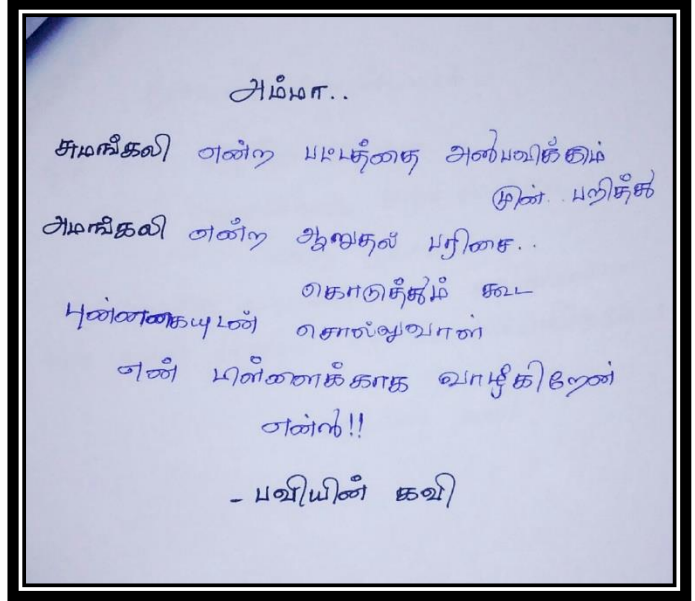 அம்மா..
சுமங்கலி என்ற பட்டத்தை அனுபவிக்கும்
முன் பறித்து
அமங்கலி என்ற ஆறுதல் பரிசை..
கொடுத்தும் கூட
புன்னகையுடன் சொல்லுவாள்
என் பிள்ளைக்காக வாழ்கிறேன்
என்று!!
- பவியின் கவி